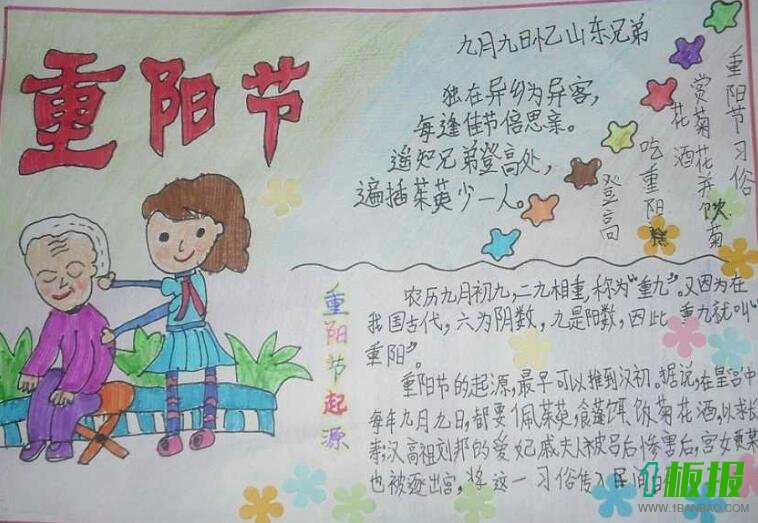 重阳节
九月九日忆山东兄弟
独在异乡为异客，
每逢佳节倍思亲。
遥知兄弟登高处，
遍插茱萸少一人。
重阳节习俗
赏菊花并饮菊
花酒
吃重阳
登高
重阳节起源
农历九月初九，二九相重，称为“重九”。又因为在
我国古代，六为阴数，九是阳数，因此，重九就叫“
重阳”。
重阳节的起源，最早可以推到汉初。据说，在皇宫中
每年九月九日，都要佩茱萸，食蓬饵、饮菊花酒，以求长
寿，汉高祖刘邦的爱妃戚夫人被吕后惨害后，宫女贾某
也被逐出宫，将这一习俗传入民间
板报
WWW.1BANBAO.COM